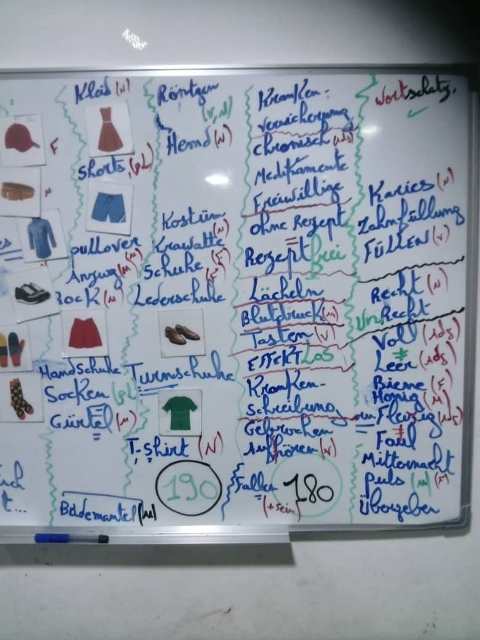 Kleid (N)
F
Shorts (PL)
Pullover
Anzug (M)
Rock (M)
Handschuhe
Socken (PL)
Gürtel (M)
Bademantel (M)
Röntgen
(V, N)
Hemd (N)
Kostüm (N)
Krawatte (F)
Schuhe
Lederschuhe
Turnschuhe
T-Shirt (N)
190
Kranken-
versicherung
chronisch (adj)
Medikamente
Freiwillige
ohne Rezept
Rezept frei
Lächeln
Blutdruck (M)
Tasten (V)
Effekt Los
Kranken-
schreibung
Gebrochen
Aufhören (V)
Fallen
(+ sein)
180
Wortschatz.
Karies (N)
Zahnfüllung
Füllen (V)
Recht (N)
Un Recht
Voll (adj)
≠
Leer (adj)
Biene (F)
Honig (M)
Fleizig (adj)
≠
Faul
Mitternacht
puls (M)
übergeben